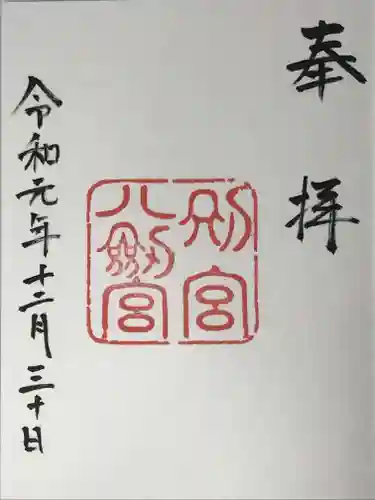 奉拝
別宮
八剣宮
令和元年十二月三十日